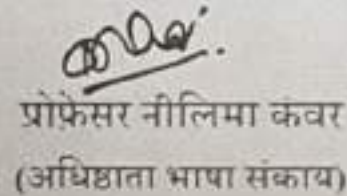 प्रोफ़ेसर नीलिमा कंवर
(अधिष्ठाता भाषा संकाय)